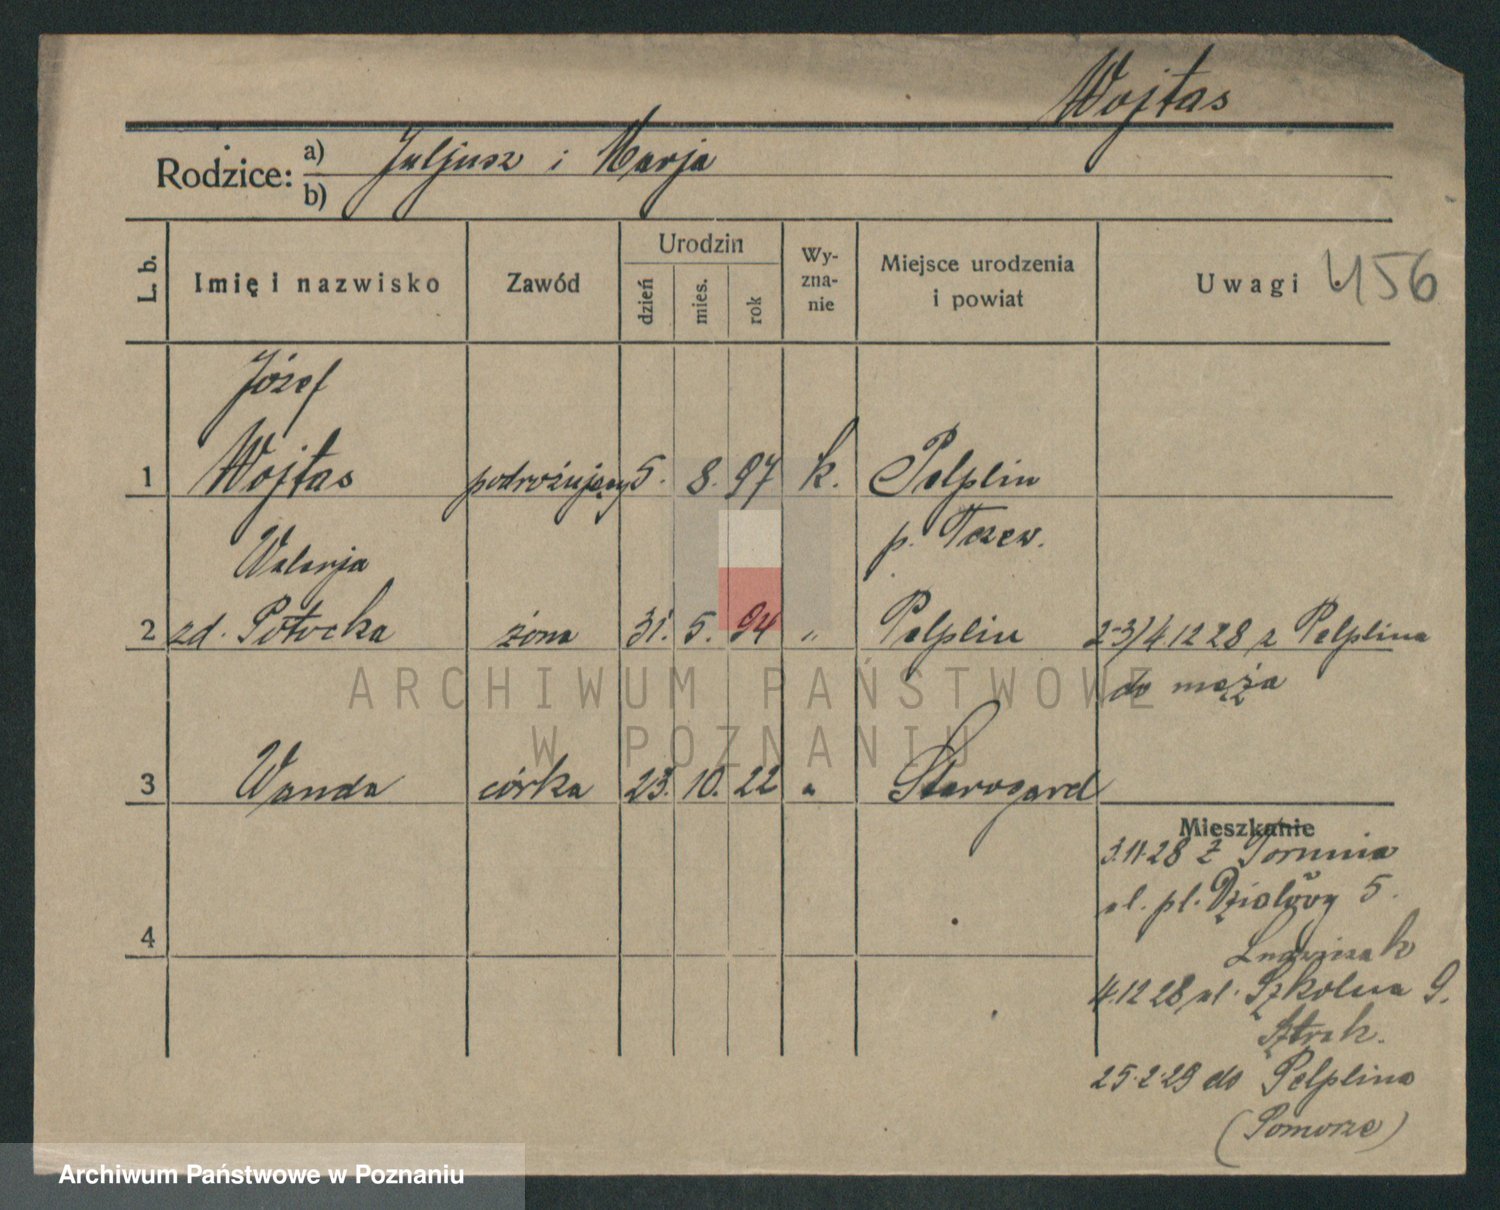 Wojtas
Rodzice: a) Juljusz i Marja
b)
L. b. Imię i nazwisko Zawód Urodzin dzień mies. rok Wy-zna-nie Miejsce urodzenia i powiat Uwagi 456
Józef
1 Wojtas podrożujący 5. 8. 97 k. Pelplin
p. Tczew.
Walerja
2 zd. Potocka żona 31. 5. 94 " Pelplin 2-3/4.12 28 z Pelplina
do męża
3 Wanda córka 23. 10. 22 " Starogard
Mieszkanie
3.11.28 z Torunia
ul. pl. Działowy 5.
4
4.12 28 ul. Szkolna 9.
25.2.29 do Pelplina
(Pomorze)
ARCHIWUM PAŃSTWOWE
W POZNANIU
Archiwum Państwowe w Poznaniu